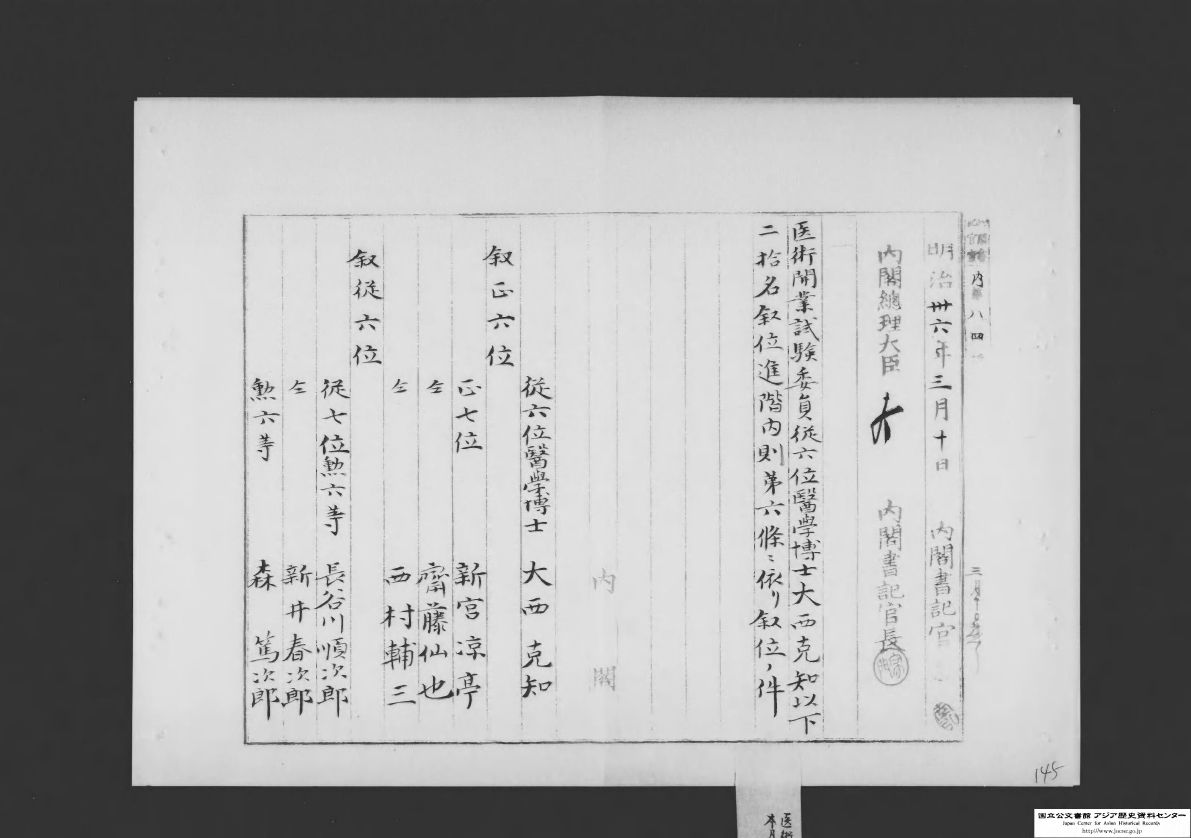 内 八四
三月十
明治卅六年三月十日
内閣書記官
内閣総理大臣
内閣書記官長
医術開業試験委員従六位醫學博士大西克知以下
二拾名叙位進階内則第六條ニ依リ叙位ノ件
内閣
従六位醫學博士 大西克知
叙正六位
正七位 新宮涼亭
仝 齋藤仙也
仝 西村輔三
叙従六位
従七位勲六等 長谷川順次郎
仝 新井春次郎
勲六等 森篤次郎
145
医術
本月
国立公文書館 アジア歴史資料センター
Japan Center for Asian Historical Records
http://www.jacar.go.jp